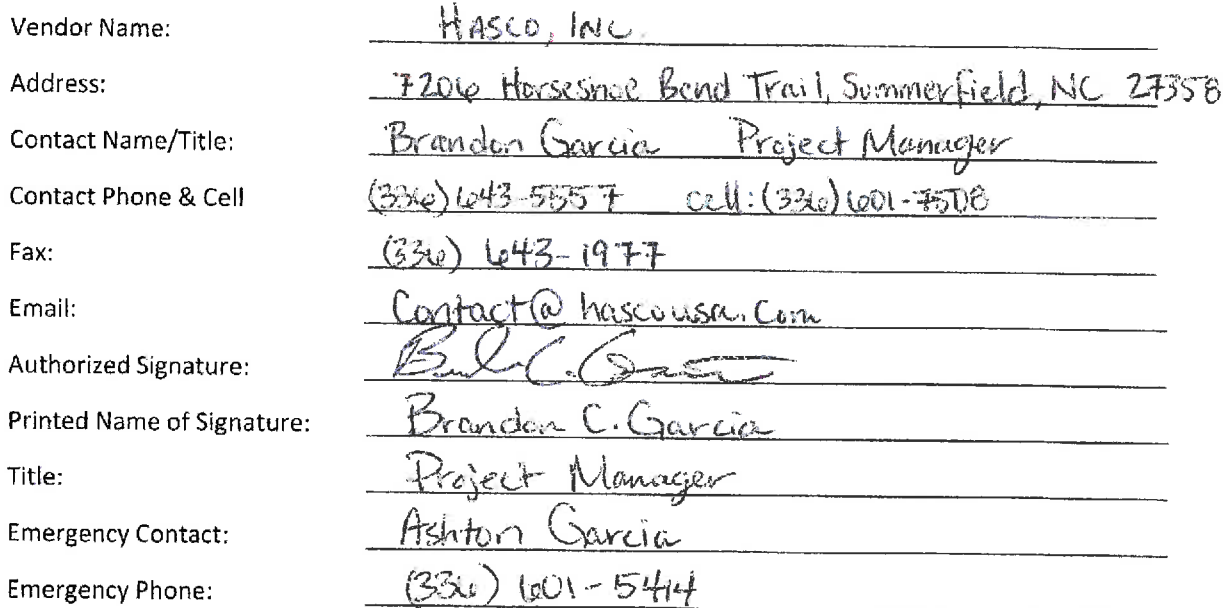 Vendor Name: HASCO, INC.
Address: 7206 Horsesnoe Bend Trail, Summerfield, NC 27358
Contact Name/Title: Brandon Garcia Project Manager
Contact Phone & Cell (336) 643-5557 cell: (336) 601-7508
Fax: (336) 643-1977
Email: Contact@hascousa.com
Authorized Signature: B C. Garcia
Printed Name of Signature: Brandon C. Garcia
Title: Project Manager
Emergency Contact: Ashton Garcia
Emergency Phone: (336) 601-5414